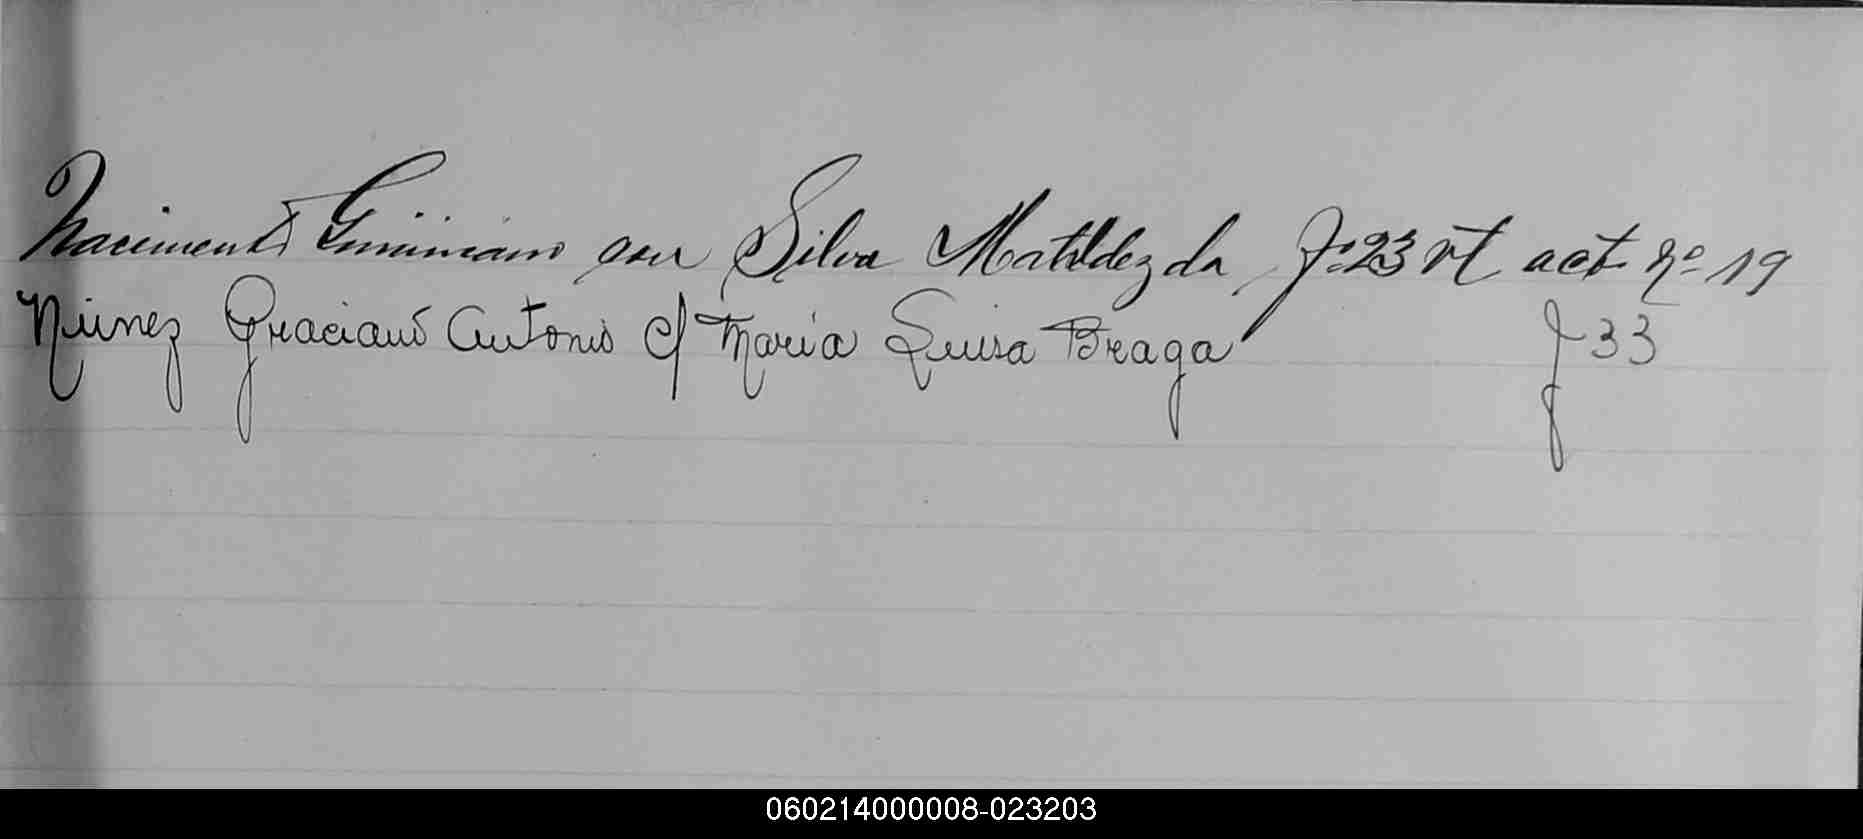 Nacimento Giminiano con Silva Matildez da, Fº 23 vt act nº 19
Núnez Graciano Antonio c/ Maria Luisa Braga F 33
060214000008-023203